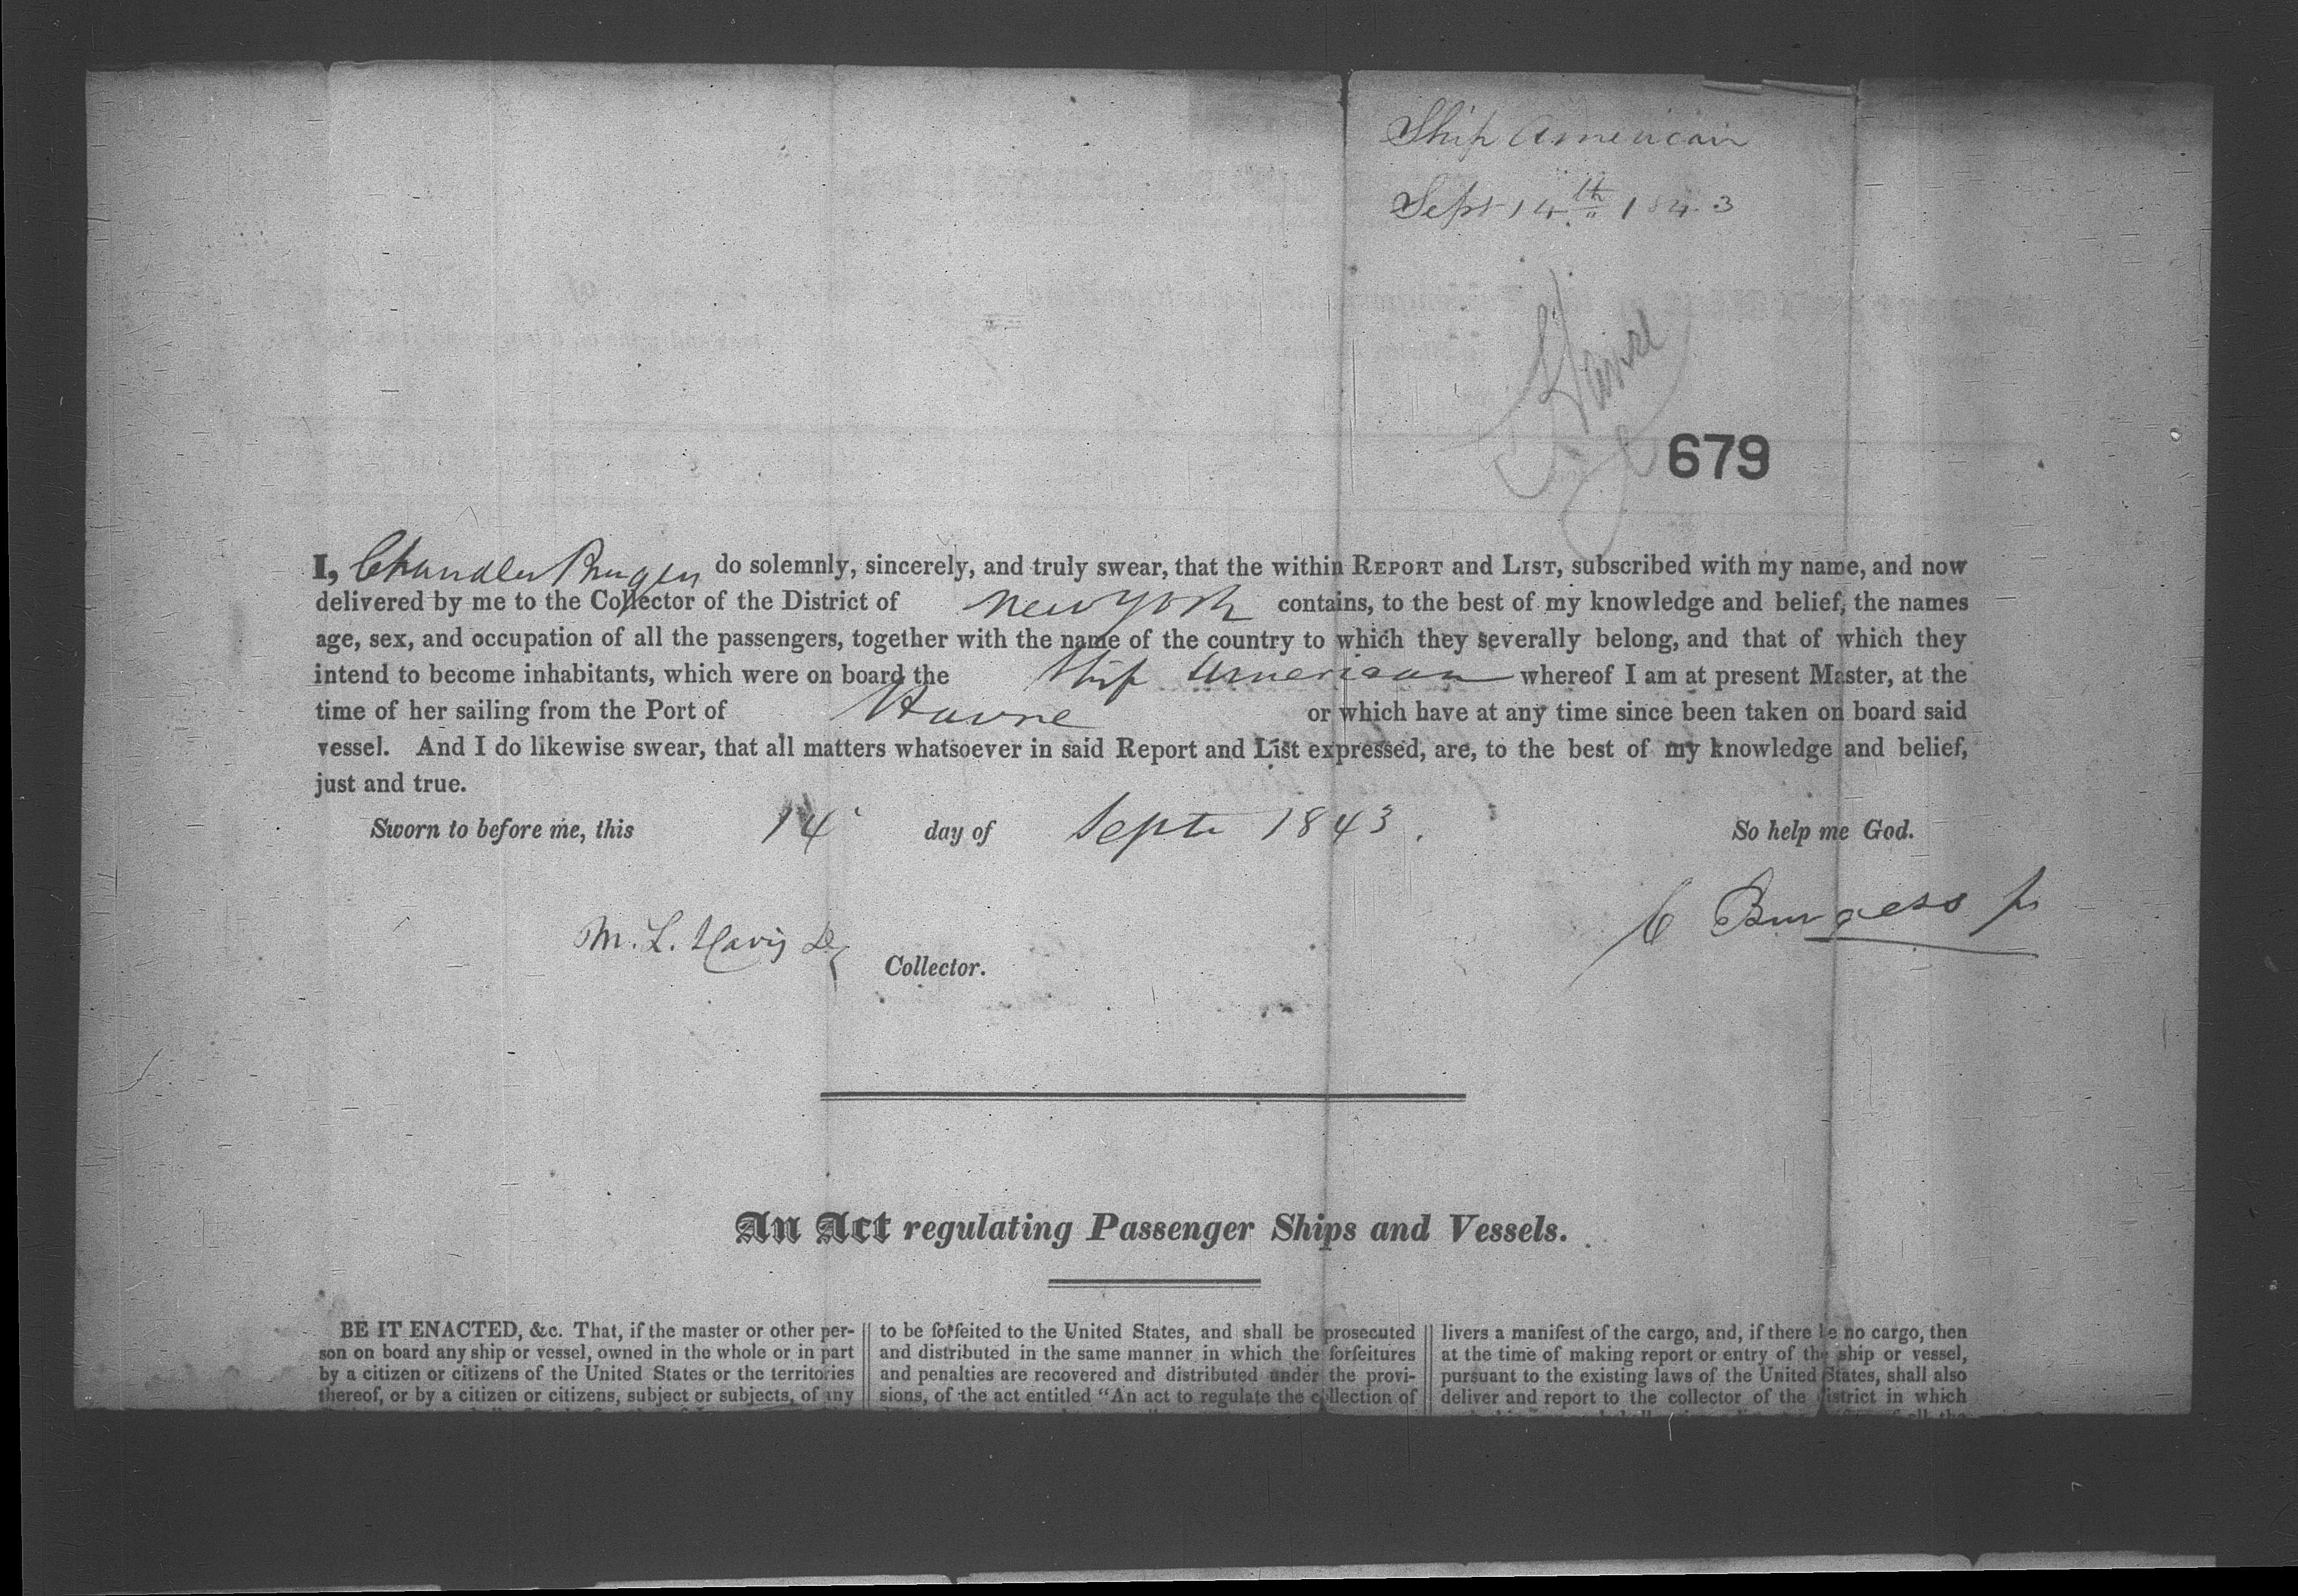 Ship American
Sept 14th 1843
Havre
679
I, Chandler Burgess do solemnly, sincerely, and truly swear, that the within REPORT and LIST, subscribed with my name, and now
delivered by me to the Collector of the District of New York contains, to the best of my knowledge and belief, the names
age, sex, and occupation of all the passengers, together with the name of the country to which they severally belong, and that of which they
intend to become inhabitants, which were on board the Ship American whereof I am at present Master, at the
time of her sailing from the Port of Havre or which have at any time since been taken on board said
vessel. And I do likewise swear, that all matters whatsoever in said Report and List expressed, are, to the best of my knowledge and belief,
just and true.
Sworn to before me, this 14 day of Septr 1843. So help me God.
C Burgess Jr
M. L. Davis Dy Collector.
An Act regulating Passenger Ships and Vessels.
BE IT ENACTED, &c. That, if the master or other per-
son on board any ship or vessel, owned in the whole or in part
by a citizen or citizens of the United States or the territories
thereof, or by a citizen or citizens, subject or subjects, of any
to be forfeited to the United States, and shall be prosecuted
and distributed in the same manner in which the forfeitures
and penalties are recovered and distributed under the provi-
sions, of the act entitled "An act to regulate the collection of
livers a manifest of the cargo, and, if there be no cargo, then
at the time of making report or entry of the ship or vessel,
pursuant to the existing laws of the United States, shall also
deliver and report to the collector of the district in which